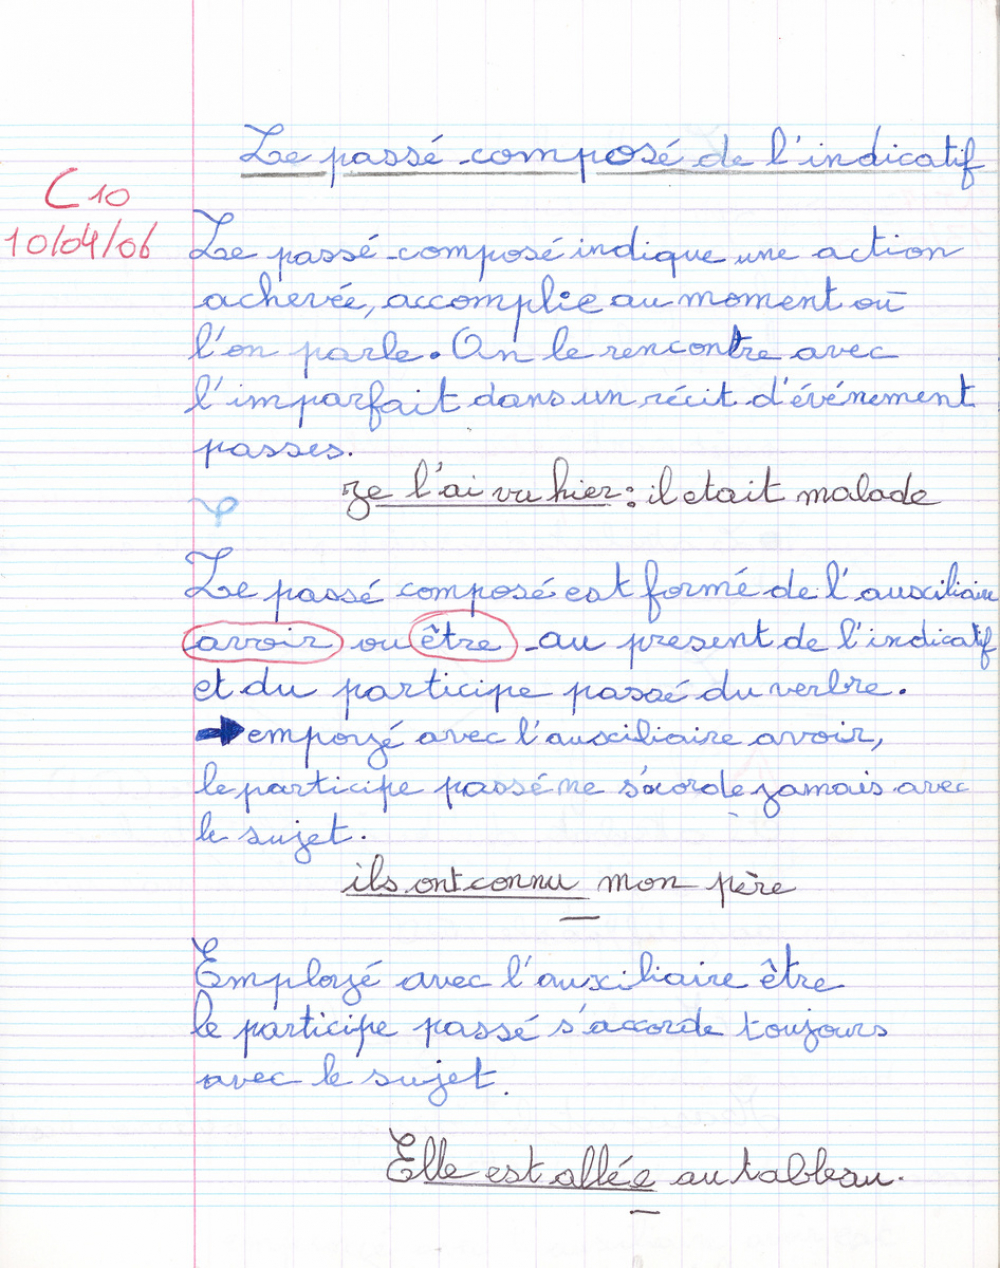 Le passé composé de l'indicatif
C 10
10/04/06
Le passé composé indique une action
achevée, accomplie au moment où
l'on parle. On le rencontre avec
l'imparfait dans un récit d'événement
passes.
Je l'ai vu hier : il etait malade
Le passé composé est formé de l'auxiliaire
avoir ou être au present de l'indicatif
et du participe passé du verbre.
➡ empoyé avec l'auxiliaire avoir,
le participe passé ne s'acorde jamais avec
le sujet.
ils ont connu mon père
Employé avec l'auxiliaire être
le participe passé s'accorde toujours
avec le sujet.
Elle est allée au tableau.